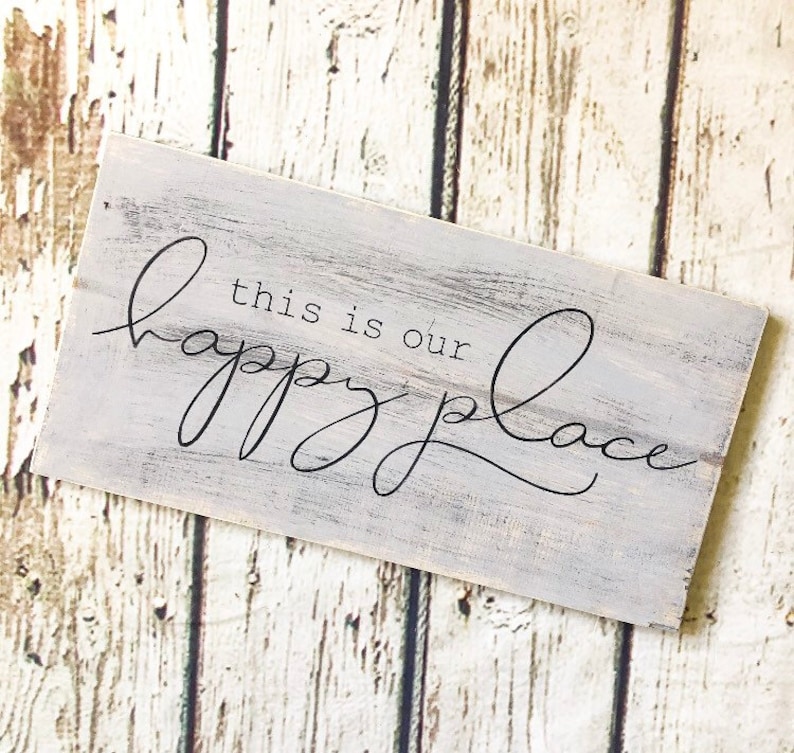 this is our
happy place